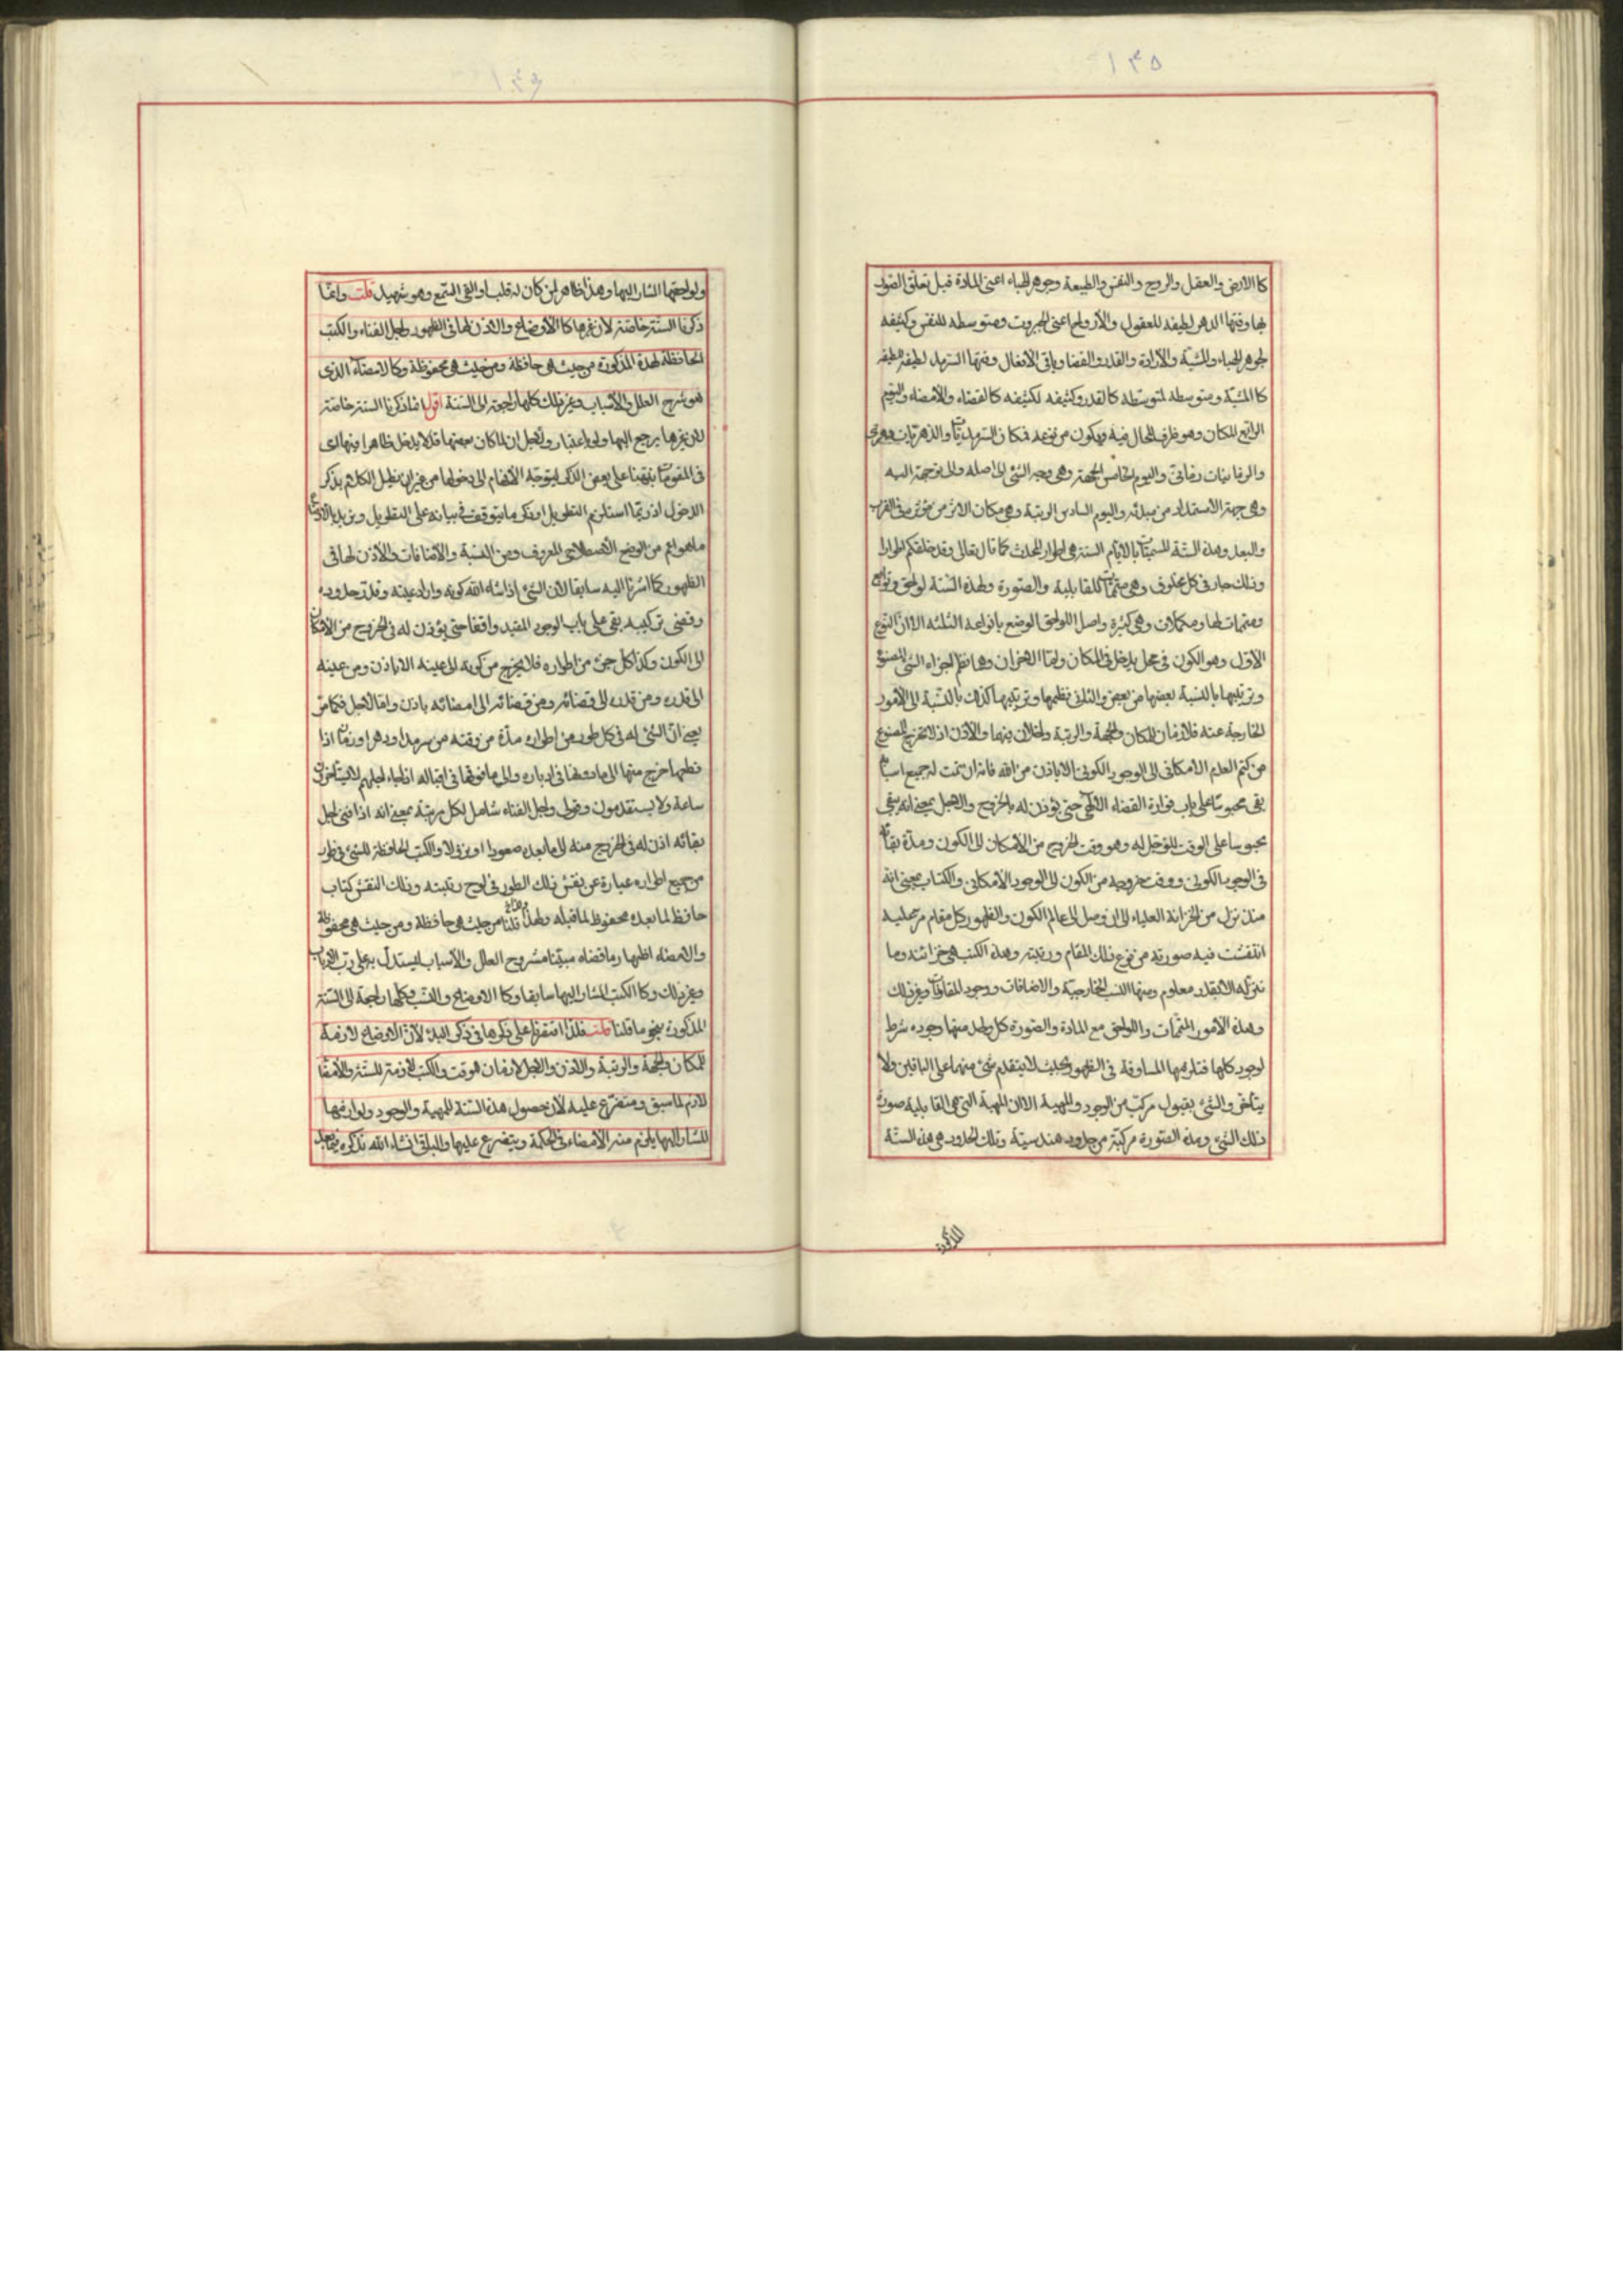 ١٣٥
كالارض والعقل والروح والنفس والطبيعة وجوهر الهباء اعنى المادة قبل تعلق الصور
بها وقتها الدهر لطيفه للعقول والأرواح اعنى الجبروت ومتوسطه للنفس وكثيفه
لجوهر الهباء والمشيّة والأرادة والقدر والقضا وباقى الأفعال وقتها السّرمد لطيفه للطيفه
كالمشيّة ومتوسطه لمتوسّطه كالقدر وكثيفه لكثيفه كالقضاء والأمضاء واليوم
الرابع المكان وهو ظرف للحال فيه ويكون من نوعه فمكان السّرمديّات والدهريّات
والزمانيات زمانىّ واليوم الخامس الجهة وهى وجه الشئ الى اصله والى توجهه اليه
وهى جهة الاستمداد من مبدئه واليوم السادس الرتبة وهى مكان الاثر من مؤثره فى القرب
والبعد وهذه الستّة المسمّيات بالايّام الستة هى اطوار المحدث كما قال تعالى وقد خلقكم اطوارا
وذلك جار فى كل مخلوق وهى متمّمات للقابلية والصّورة ولهذه الستّة لواحق وتوابع
ومتممات لها ومكملات وهى كثيرة واصل اللواحق الوضع بانواعه الثلثه الا ان النوع
الاوّل وهو الكون فى محل يدخل فى المكان وامّا الاخران وهما نظم اجزاء الشئ المصنوع
وترتيبها بالنسبة بعضها من بعض والثانى نظمها وترتيبها كذلك بالنّسبة الى الأمور
الخارجة عنه فلازمان للمكان والجهة والرتبة وداخلان فيها والأذن اذ لا يخرج المصنوع
من كتم العدم الامكانى الى الوجود الكونى الا باذن من الله فانه ان تمت له جميع اسبابه
بقى محبوسا على باب فوارة القضاء الالٰهى حتى يؤذن له بالخروج والاجل بمعنى انه يبقى
محبوسا على الوقت المؤجل له وهو وقت الخروج من الأمكان الى الكون ومدّة بقائه
فى الوجود الكونى ووقت خروجه من الكون الى الوجود الأمكانى والكتاب بمعنى انه
منذ نزل من الخزانة العلياء الى ان وصل الى عالم الكون والظهور كل مقام مر عليه
انتقشت فيه صورته من نوع ذلك المقام ورتبته وهذه الكتب هى خزائنه وما
ننزله الا بقدر معلوم ومنها النسب الخارجيّة والاضافات ووجود المقارنات وغير ذلك
وهذه الأمور المتمّمات واللواحق مع المادة والصّورة كل واحد منها وجوده شرط
لوجود كلها فتلزمها المساوقة فى الظهور بحيث لا يتقدم شئ منها على الباقين ولا
يتاخر والشئ بقبول مركّب من الوجود والمهية الا ان المهية التى هى القابلية صورة
ذلك الشئ وهذه الصّورة مركبّة من حدود هندسيّة وتلك الحدود هى هذه الستّة
المذكورة
١٣٦
ولواحقها المشار اليها وهذا ظاهر لمن كان له قلب او القى السّمع وهو شهيد قلت وانّما
ذكرنا الستة خاصّة لأن غيرها كالأوضاع والاذن لها فى الظهور واجل الفناء والكتب
الحافظة لهذه المذكورة من حيث هى حافظة ومن حيث هى محفوظة وكالامضاء الذى
هو شرح العلل والأسباب وغير ذلك كلها راجعة الى الستة اقول انما ذكرنا الستة خاصّة
لان غيرها يرجع اليها ولو باعتبار ولأجل ان لما كان بعضها قد لا يدخل ظاهرا فيها اى
فى المقومات نبّهنا على بعض الذكر ليتوجّه الأفهام الى دخولها من غير ان نطيل الكلام بذكر
الدخول اذ ربّما استلزم التطويل او ذكر ما يتوقف فى بيانه على التطويل ونريد بالاوضاع
ما هو اعم من الوضع الأصطلاحى المعروف ومن النسبة والأضافات والأذن لها فى
الظهور كما اشرنا اليه سابقا لأن الشئ اذا شاء الله كونه واراد عينه وقدّر حدوده
وقضى تركيبه بقى على باب الوجود المقيد واقفا حتى يؤذن له فى الخروج من الأمكان
الى الكون وكذا كل جزء من اطواره فلا يخرج من كونه الى عينه الا باذن ومن عينه
الى قدره ومن قدره الى قضائه ومن قضائه الى امضائه باذن وامّا الأجل فكما مرّ
يعنى انّ الشئ له فى كل طور من اطواره مدّة من وقته من سرمد او دهر او زمان اذا
قطعها خرج منها الى ما تحتها فى ادباره والى ما فوقها فى اقباله اذا جاء اجلهم لا يستأخرون
ساعة ولا يستقدمون وقولى واجل الفناء شامل لكل مرتبة بمعنى انه اذا فنى اجل
بقائه اذن له فى الخروج منه الى ما بعده صعودا او نزولا والكتب الحافظة للشئ فى طور
من جميع اطواره عبارة عن نقش ذلك الطور فى لوح رتبته وذلك النقش كتاب
حافظ لما بعده محفوظ لما قبله ولهذا قلنا من حيث هى حافظة ومن حيث هى محفوظة
والامضاء اظهار ما قضاه مبيّنا مشروح العلل والأسباب ليستدلّ به على ربّ الارباب
وغير ذلك وكالكتب المشار اليها سابقا وكالاوضاع والنّسب وكلها راجعة الى الستّة
المذكورة بنحو ما قلنا قلت فلذا اقتصرنا على ذكرها فى ذكر البدء لأنّ الاوضاع لازمة
للمكان والجهة والرتبة والاذن والاجل لازمان للوقت والكتب لازمة للستّة والأمضاء
لازم لما سبق ومتفرّع عليه لأن حصول هذه الستة للمهية والوجود ولوازمها
المشار اليها يلزم منه الأمضاء فى الحكمة ويتفرع عليها والباقى انشاء الله نذكره فيما بعد